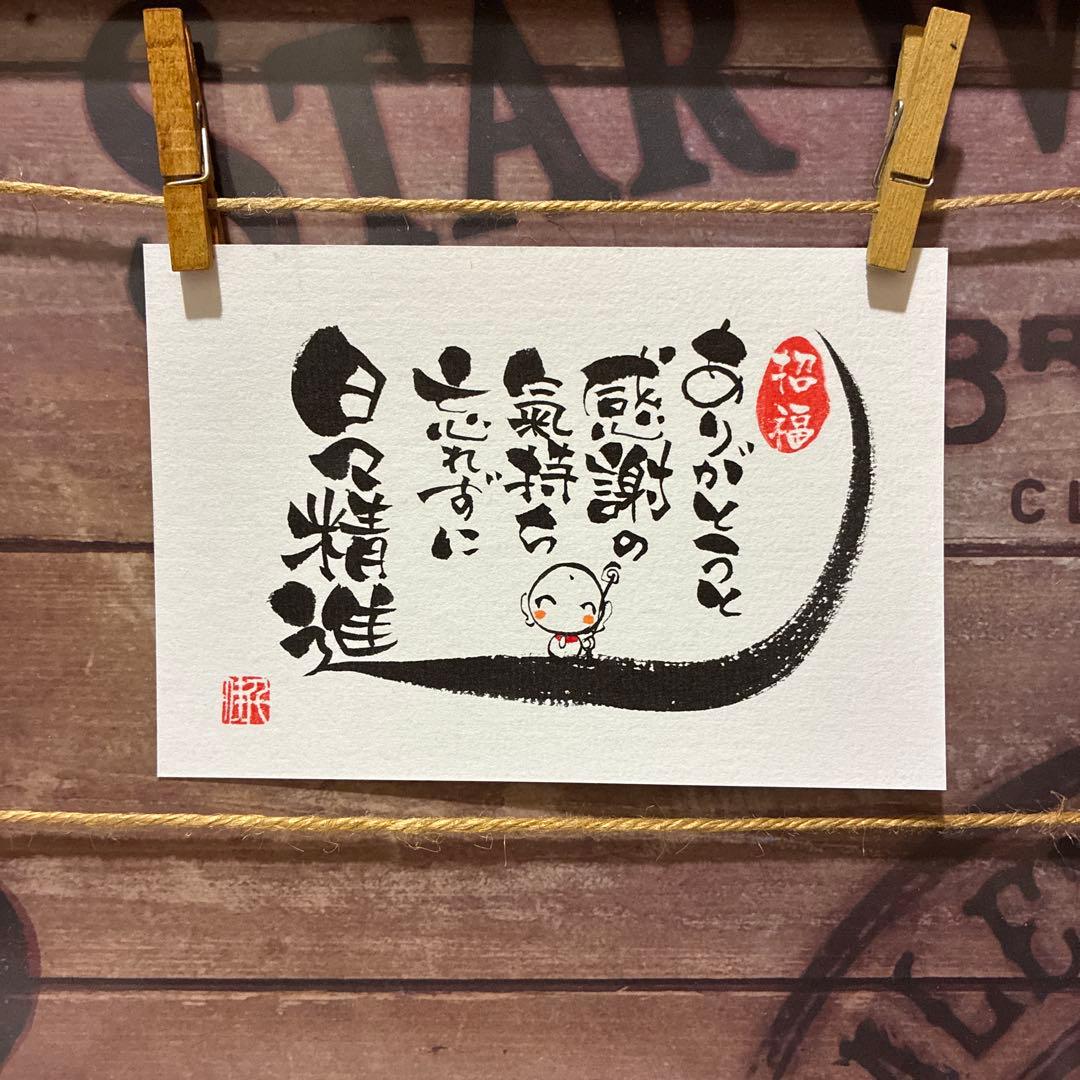 STAR W
招福
ありがとうと
感謝の
氣持ち
忘れずに
日々精進
CL